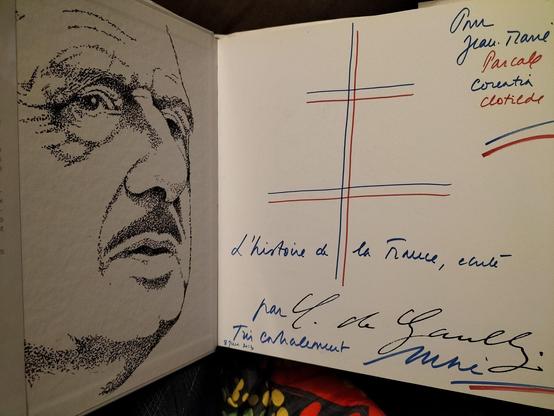 Pour
Jean-Marie
Pascale
Corentin
Clotilde
L'histoire de la France, conté
par Y. de Gaulle
Très cordialement